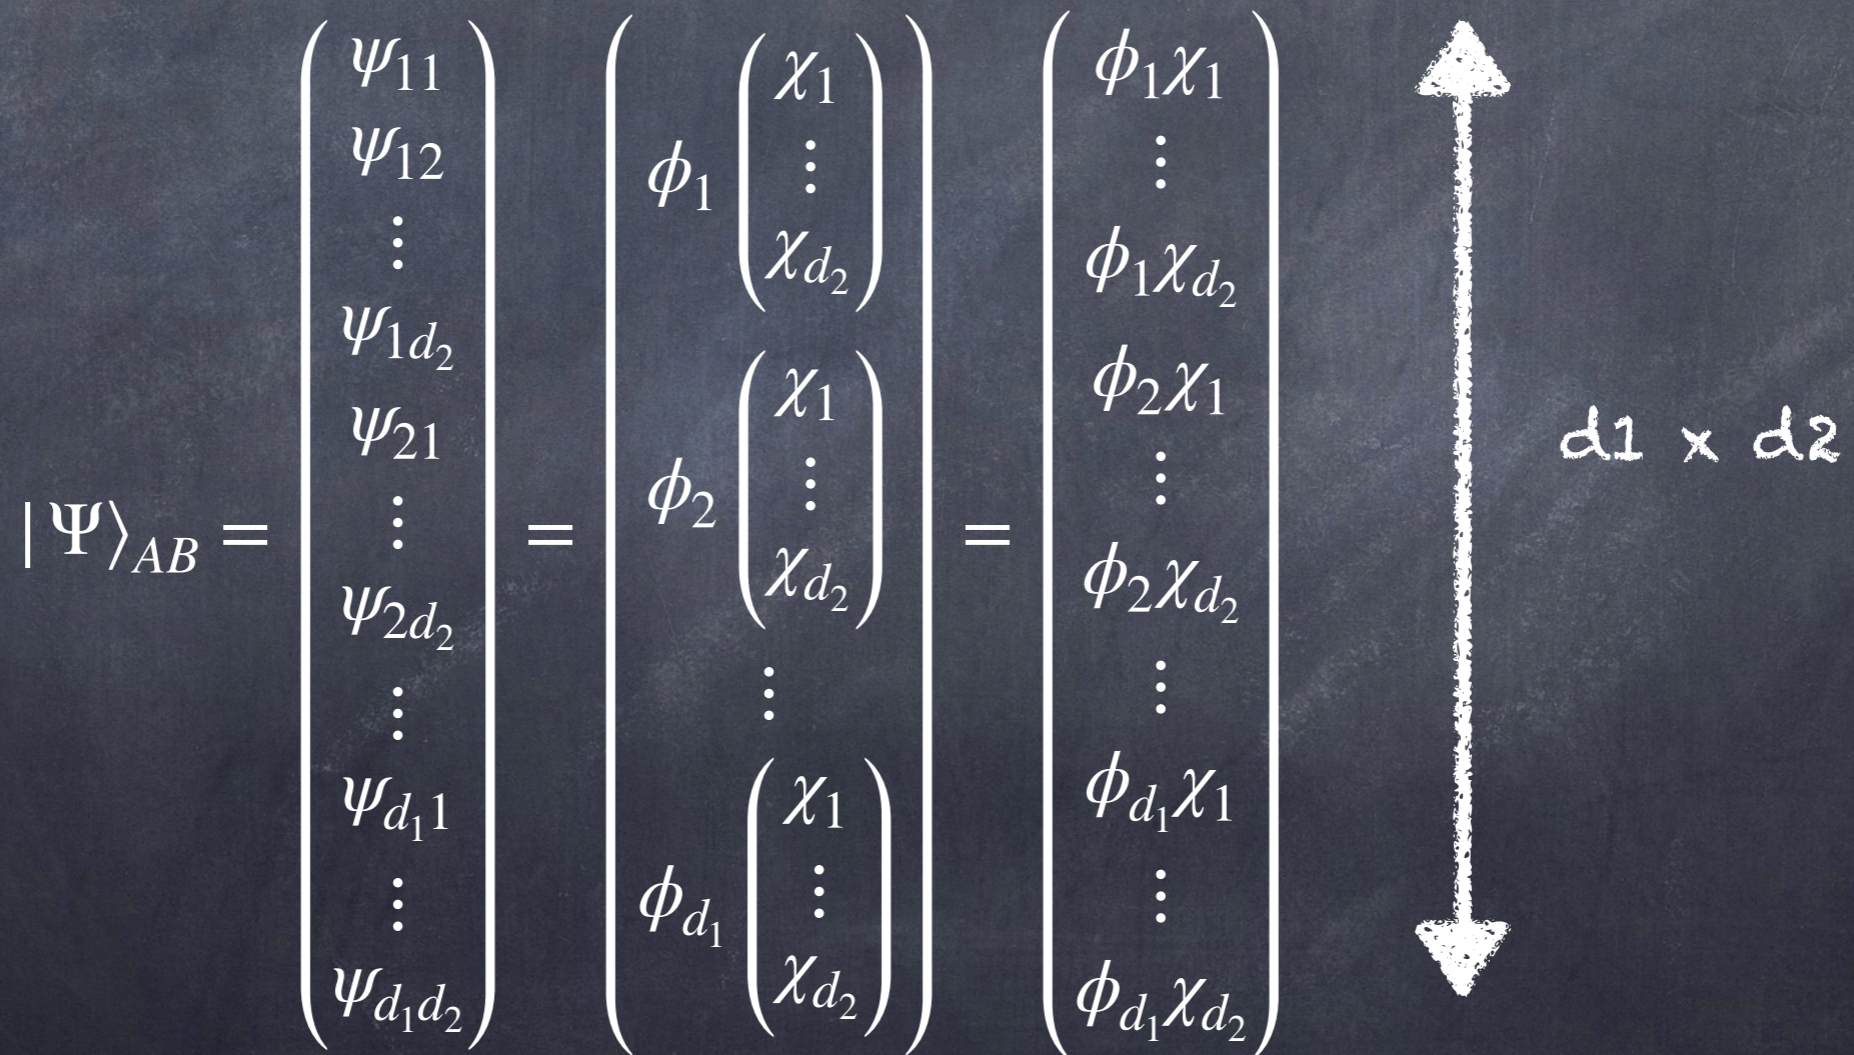 |Ψ⟩_{AB} = \begin{pmatrix} ψ_{11} \\ ψ_{12} \\ ⋮ \\ ψ_{1d_2} \\ ψ_{21} \\ ⋮ \\ ψ_{2d_2} \\ ⋮ \\ ψ_{d_1 1} \\ ⋮ \\ ψ_{d_1 d_2} \end{pmatrix} = \begin{pmatrix} ϕ_1 \begin{pmatrix} χ_1 \\ ⋮ \\ χ_{d_2} \end{pmatrix} \\ ϕ_2 \begin{pmatrix} χ_1 \\ ⋮ \\ χ_{d_2} \end{pmatrix} \\ ⋮ \\ ϕ_{d_1} \begin{pmatrix} χ_1 \\ ⋮ \\ χ_{d_2} \end{pmatrix} \end{pmatrix} = \begin{pmatrix} ϕ_1 χ_1 \\ ⋮ \\ ϕ_1 χ_{d_2} \\ ϕ_2 χ_1 \\ ⋮ \\ ϕ_2 χ_{d_2} \\ ⋮ \\ ϕ_{d_1} χ_1 \\ ⋮ \\ ϕ_{d_1} χ_{d_2} \end{pmatrix}
d1 x d2